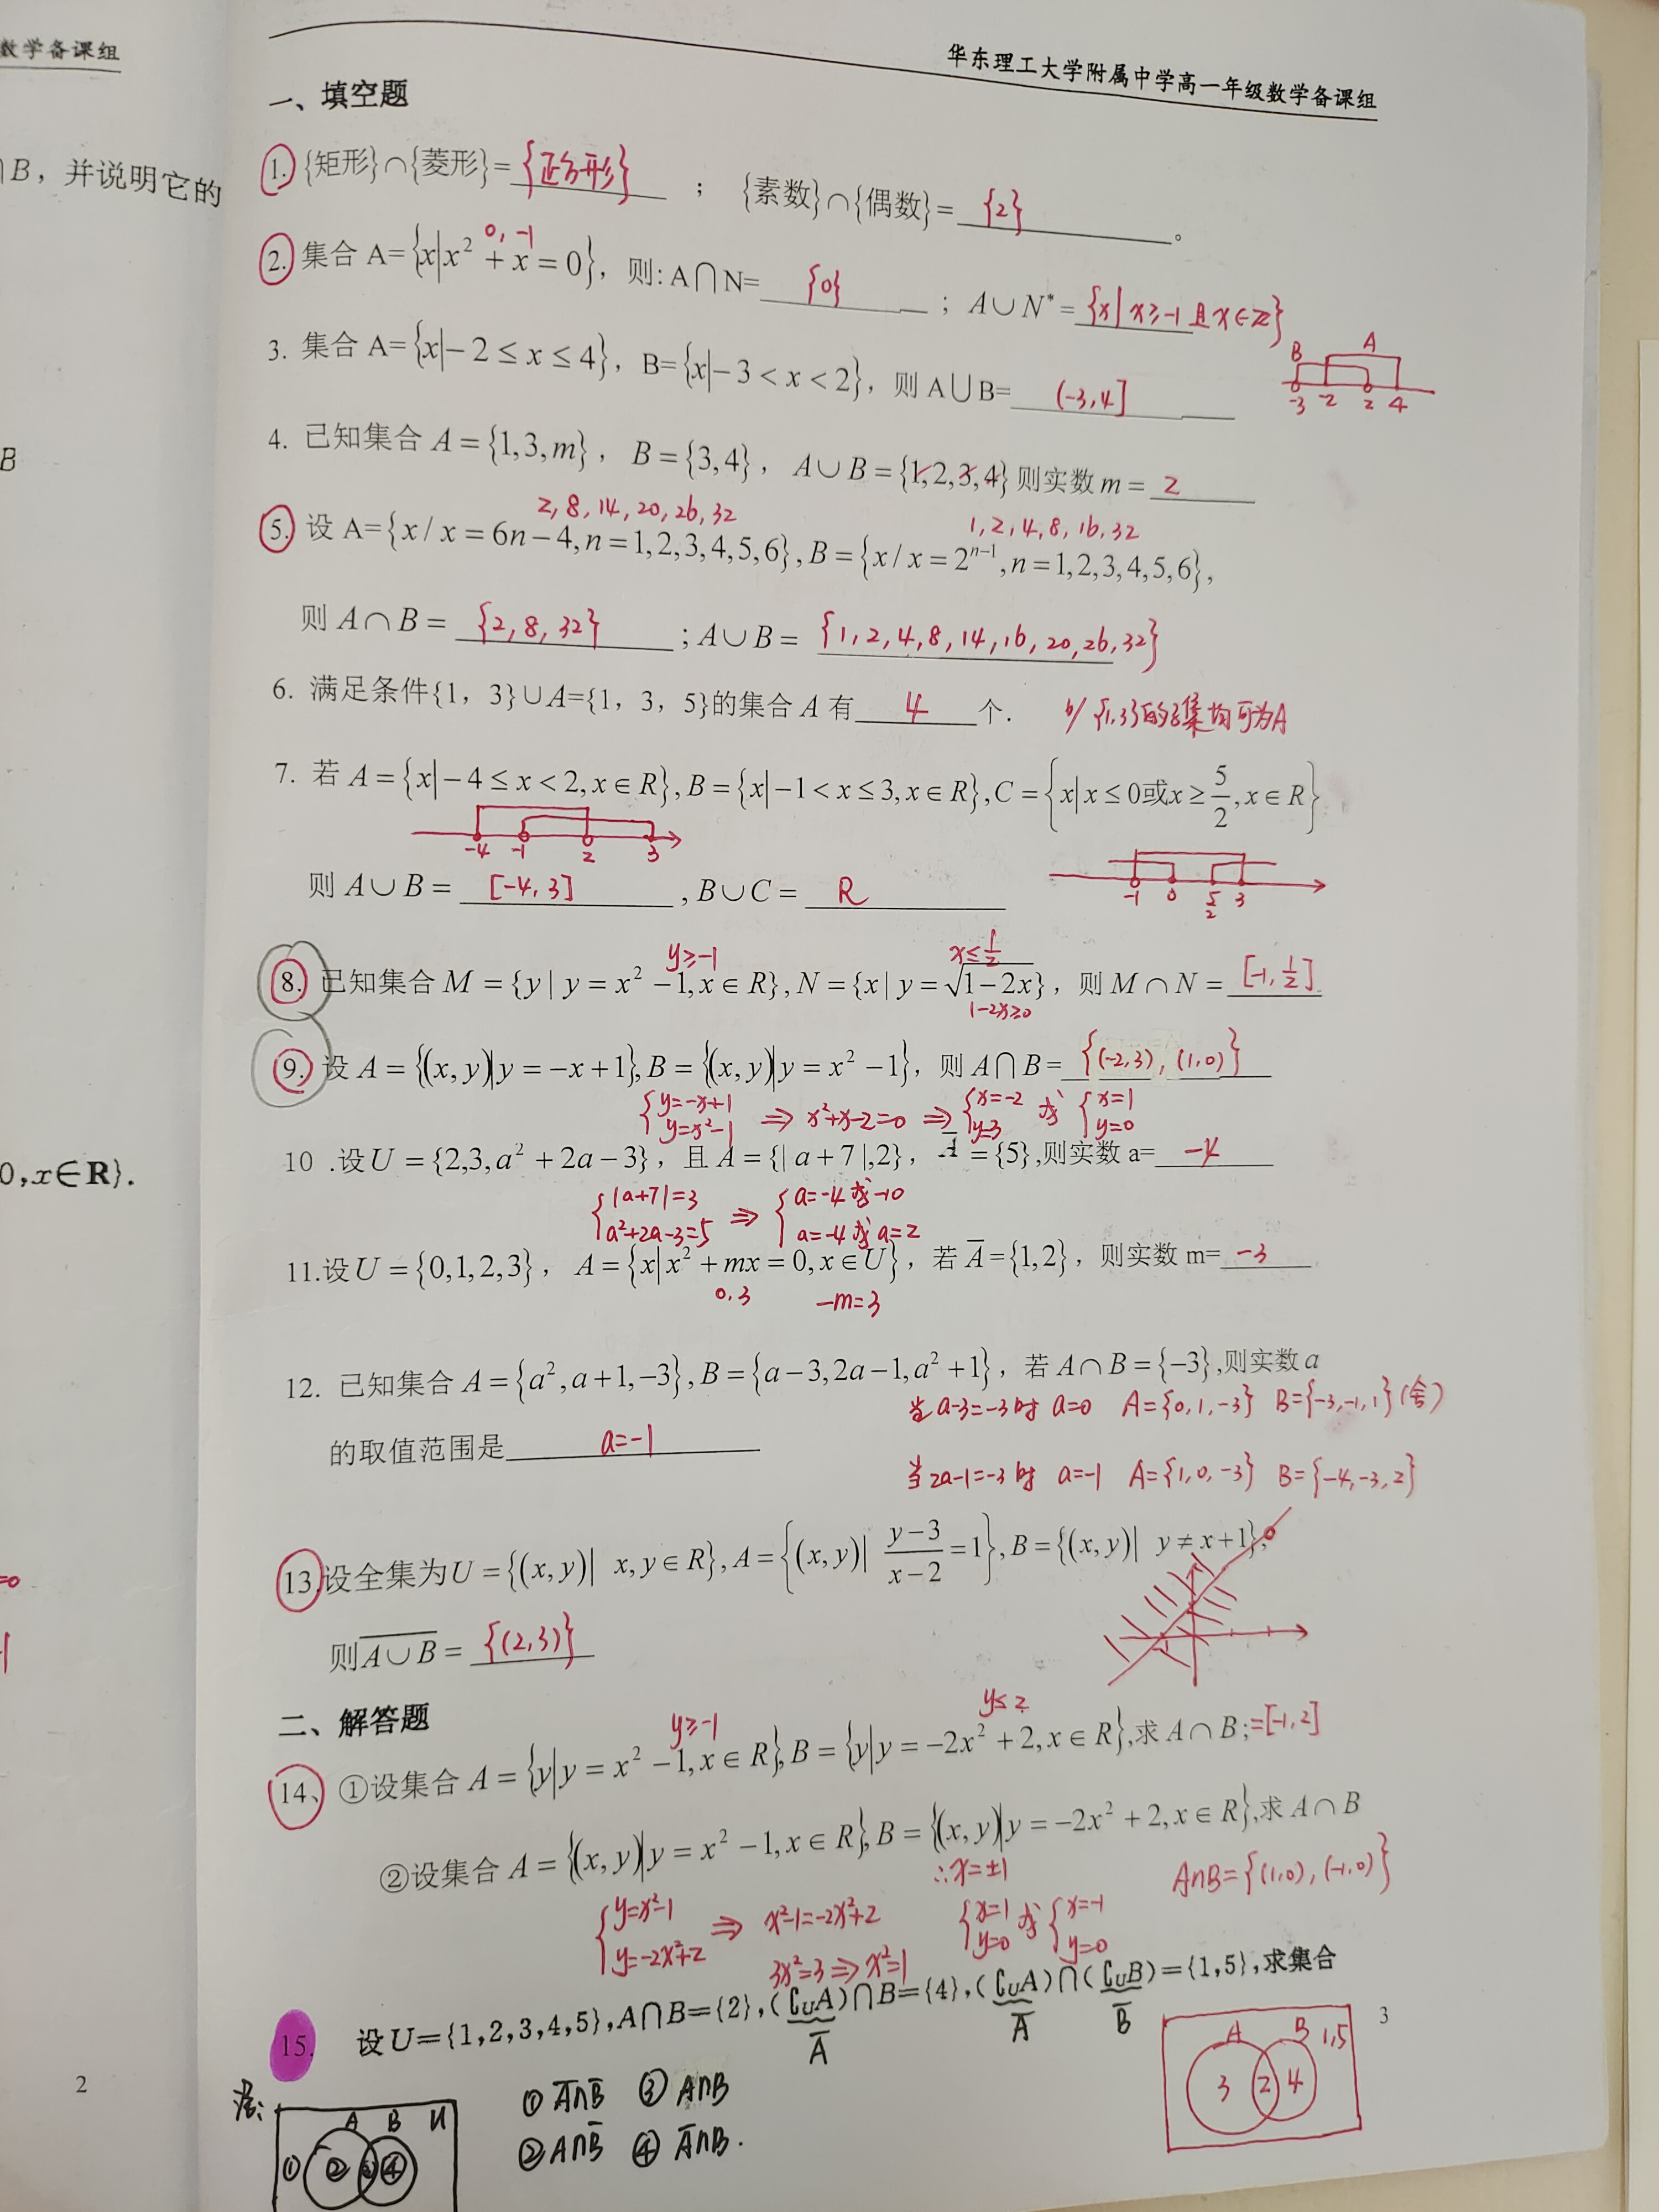 数学备课组
∩B，并说明它的
B
0,x∈R}.
=0
2
华东理工大学附属中学高一年级数学备课组
一、填空题
1. {矩形}∩{菱形}={正方形} ； {素数}∩{偶数}={2}。
0, -1
2. 集合 A={x|x²+x=0}，则: A∩N={0} ； A∪N*={x|x≥-1且x∈Z}
3. 集合 A={x|-2≤x≤4}，B={x|-3<x<2}，则 A∪B=(-3,4]
B A
-3 -2 2 4
4. 已知集合 A={1,3,m}，B={3,4}，A∪B={1,2,3,4}则实数m=2
2,8,14,20,26,32 1,2,4,8,16,32
5. 设 A={x/x=6n-4,n=1,2,3,4,5,6},B={x/x=2ⁿ⁻¹,n=1,2,3,4,5,6},
则 A∩B={2,8,32} ; A∪B={1,2,4,8,14,16,20,26,32}
6. 满足条件{1，3}∪A={1，3，5}的集合 A 有4个. {1,3}的子集均可为A
7. 若 A={x|-4≤x<2,x∈R},B={x|-1<x≤3,x∈R},C={x|x≤0或x≥5/2,x∈R}
-4 -1 2 3
-1 0 5/2 3
则 A∪B=[-4,3] , B∪C=R
y≥-1 x≤1/2
8. 已知集合 M={y|y=x²-1,x∈R},N={x|y=√(1-2x)}，则 M∩N=[-1,1/2]
1-2x≥0
9. 设 A={(x,y)|y=-x+1},B={(x,y)|y=x²-1}，则 A∩B={(-2,3),(1,0)}
{y=-x+1 y=x²-1 ⇒ x²+x-2=0 ⇒ {x=-2 y=3 或 {x=1 y=0
10 .设U={2,3,a²+2a-3}，且 A={|a+7|,2}，A̅={5},则实数 a=-4
{|a+7|=3 a²+2a-3=5 ⇒ {a=-4或-10 a=-4或a=2
11.设U={0,1,2,3}，A={x|x²+mx=0,x∈U}，若 A̅={1,2}，则实数 m=-3
0,3 -m=3
12. 已知集合 A={a²,a+1,-3},B={a-3,2a-1,a²+1}，若 A∩B={-3},则实数a
当a-3=-3时 a=0 A={0,1,-3} B={-3,-1,1}(舍)
的取值范围是a=-1
当2a-1=-3时 a=-1 A={1,0,-3} B={-4,-3,2}
13.设全集为U={(x,y)| x,y∈R},A={(x,y)| (y-3)/(x-2)=1},B={(x,y)| y≠x+1},
则A∪B‾={(2,3)}
二、解答题
y≥-1 y≤2
14、①设集合 A={y|y=x²-1,x∈R},B={y|y=-2x²+2,x∈R},求 A∩B;=[-1,2]
②设集合 A={(x,y)|y=x²-1,x∈R},B={(x,y)|y=-2x²+2,x∈R},求 A∩B
∴x=±1 A∩B={(1,0),(-1,0)}
{y=x²-1 y=-2x²+2 ⇒ x²-1=-2x²+2 {x=1 y=0 或 {x=-1 y=0
3x²=3⇒x²=1
15. 设U={1,2,3,4,5},A∩B={2},(∁UA)∩B={4},(∁UA)∩(∁UB)={1,5},求集合
A̅ A̅ B̅
3
A B 1,5
3 2 4
法:
① A̅∩B̅ ③ A∩B
② A∩B̅ ④ A̅∩B.
A B U
① ② ③ ④